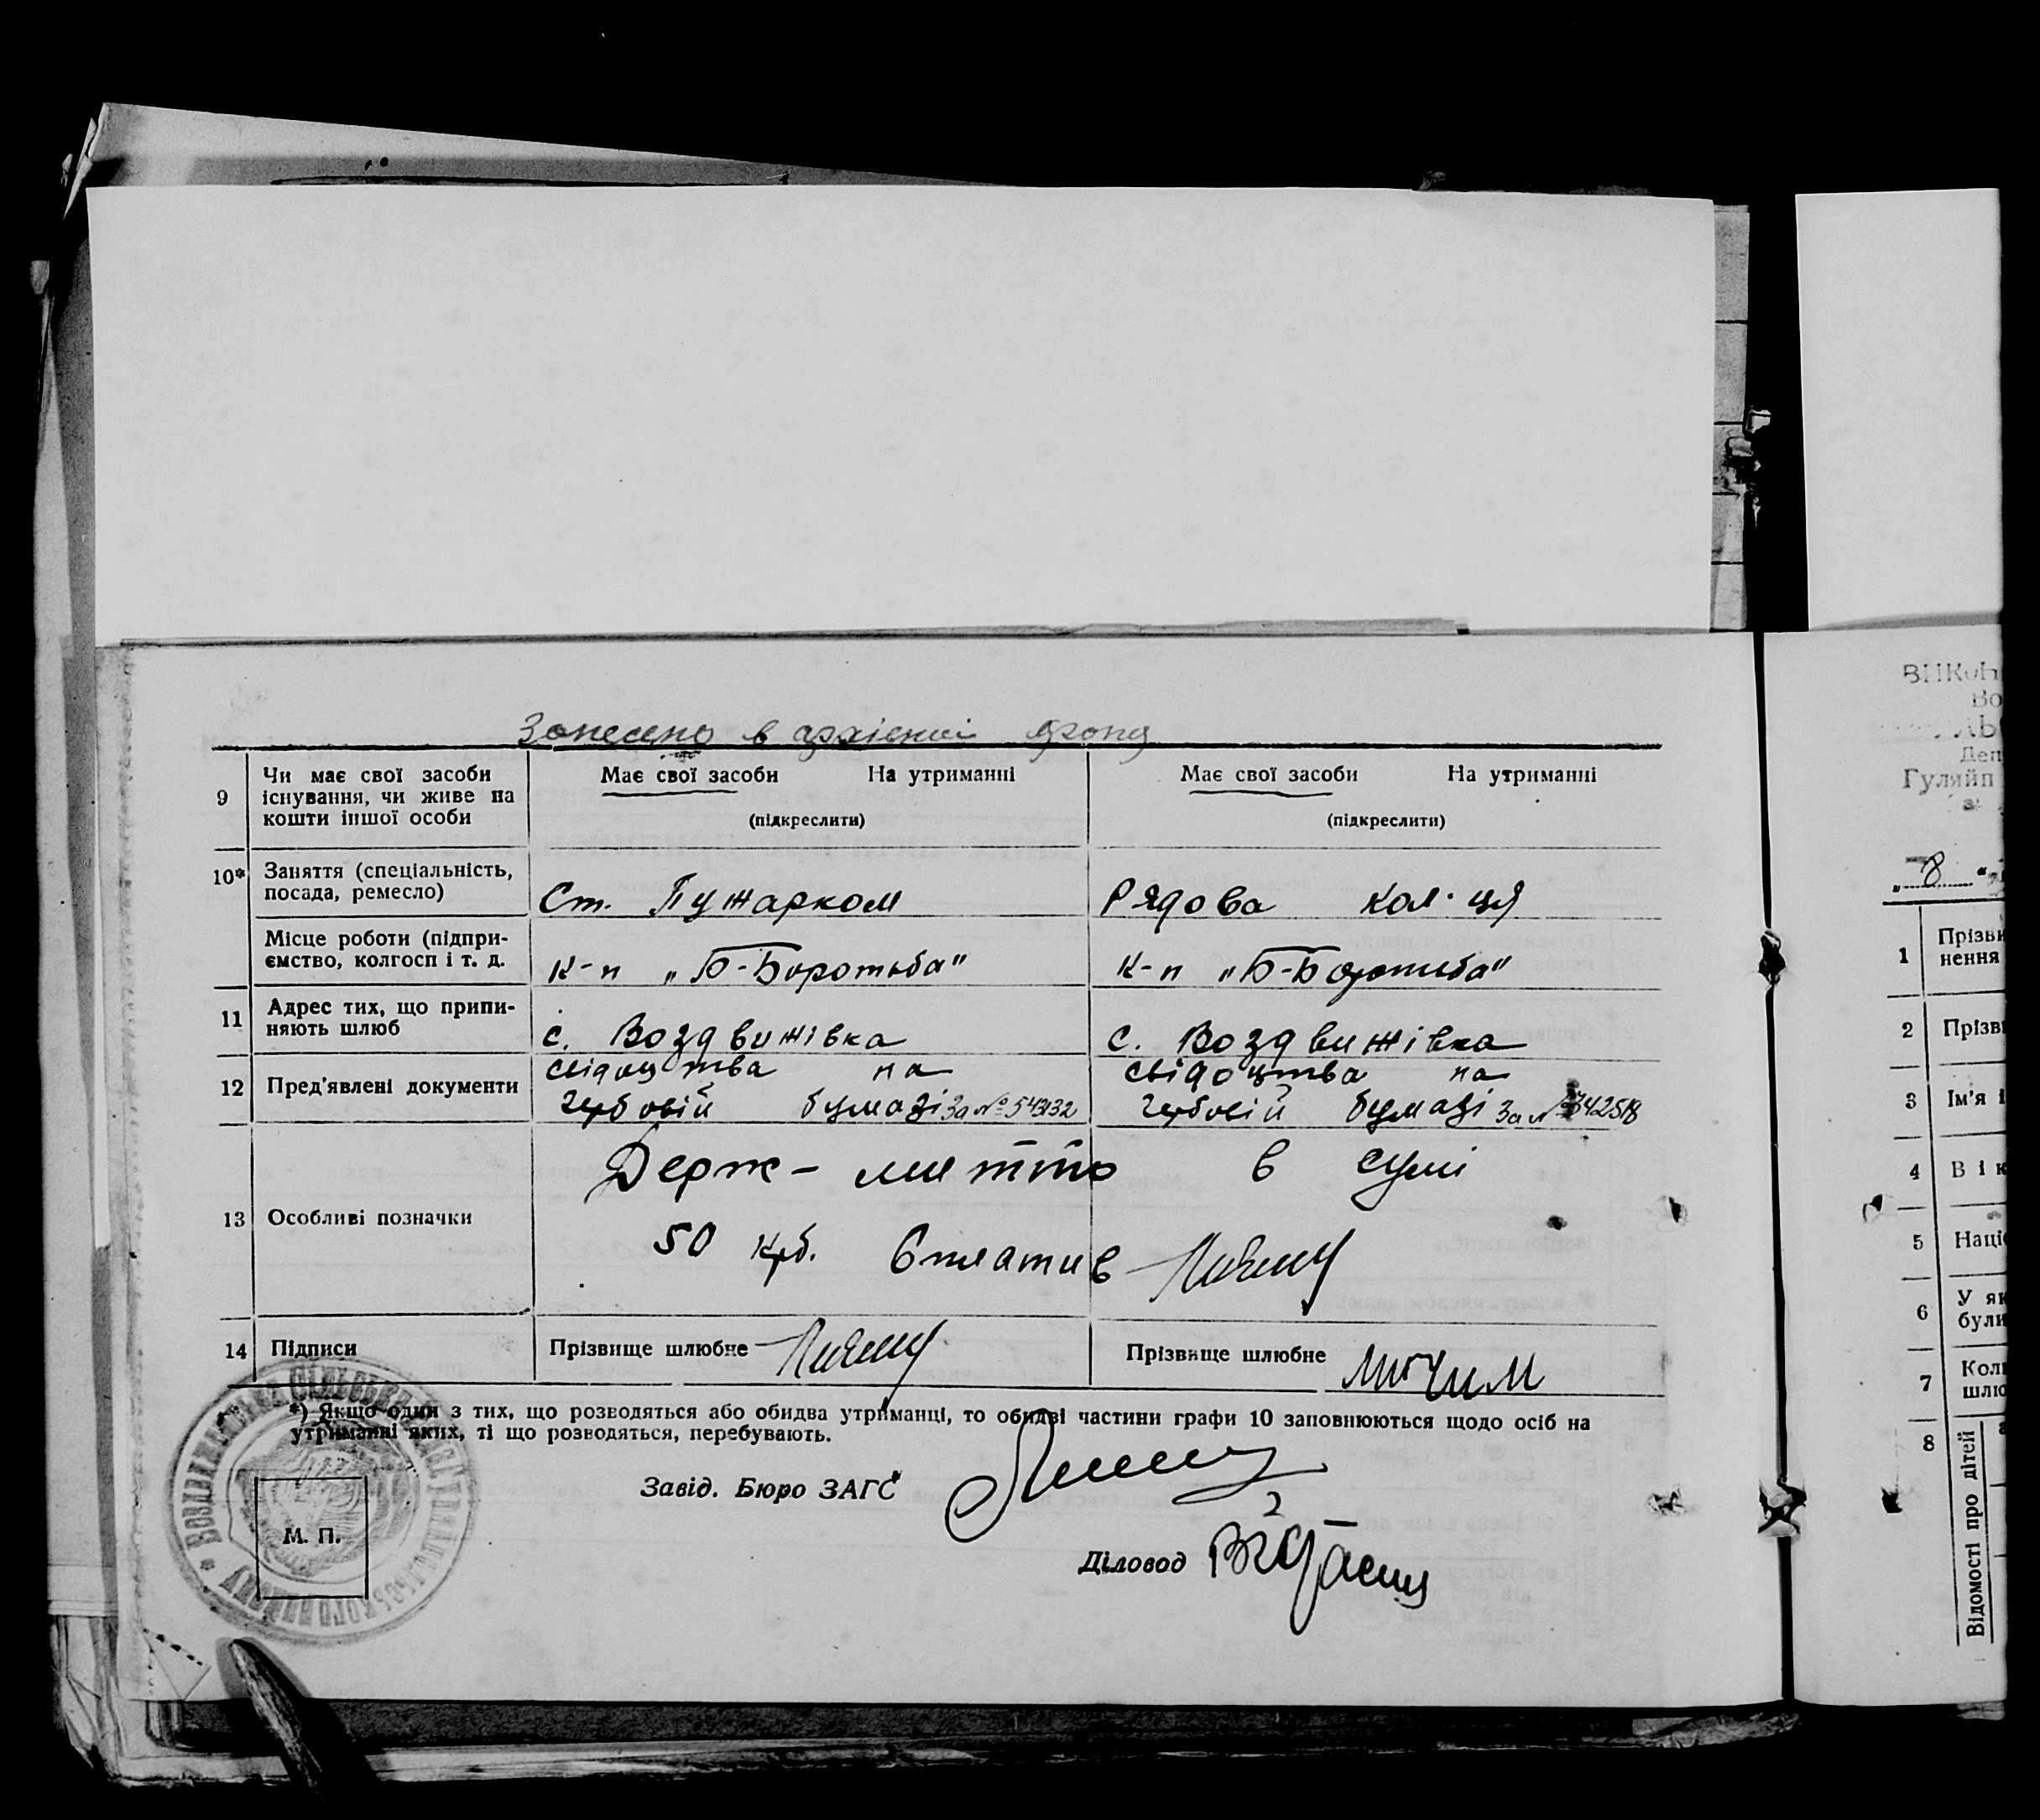 Занесено в архівний фонд
9
Чи має свої засоби існування, чи живе на кошти іншої особи
Має свої засоби На утриманні
(підкреслити)
Має свої засоби На утриманні
(підкреслити)
10*
Заняття (спеціальність, посада, ремесло)
Ст. Пужарком
Рядова кол-ця
Місце роботи (підпри-
ємство, колгосп і т. д.
к-п „Б-Боротьба"
к-п „Б-Боротьба"
11
Адрес тих, що припи-
няють шлюб
с. Воздвижівка
с. Воздвижівка
12
Пред'явлені документи
свідоцтва на
гербовій бумазі За № 543132
свідоцтва на
гербовій бумазі За №
13
Особливі позначки
Держ-митто в сумі
50 крб. Сплатив
14
Підписи
Прізвище шлюбне
Прізвище шлюбне
*) Якщо один з тих, що розводяться або обидва утриманці, то обидві частини графи 10 заповнюються щодо осіб на
утриманні яких, ті що розводяться, перебувають.
Завід. Бюро ЗАГС
Діловод
М. П.
Гуляйп
„ 8 "
1
Прізви
нення
2
Прізв
3
Ім'я і
4
В і к
5
Наці
6
У як
були
7
Кол
шлю
8
Відомості про дітей